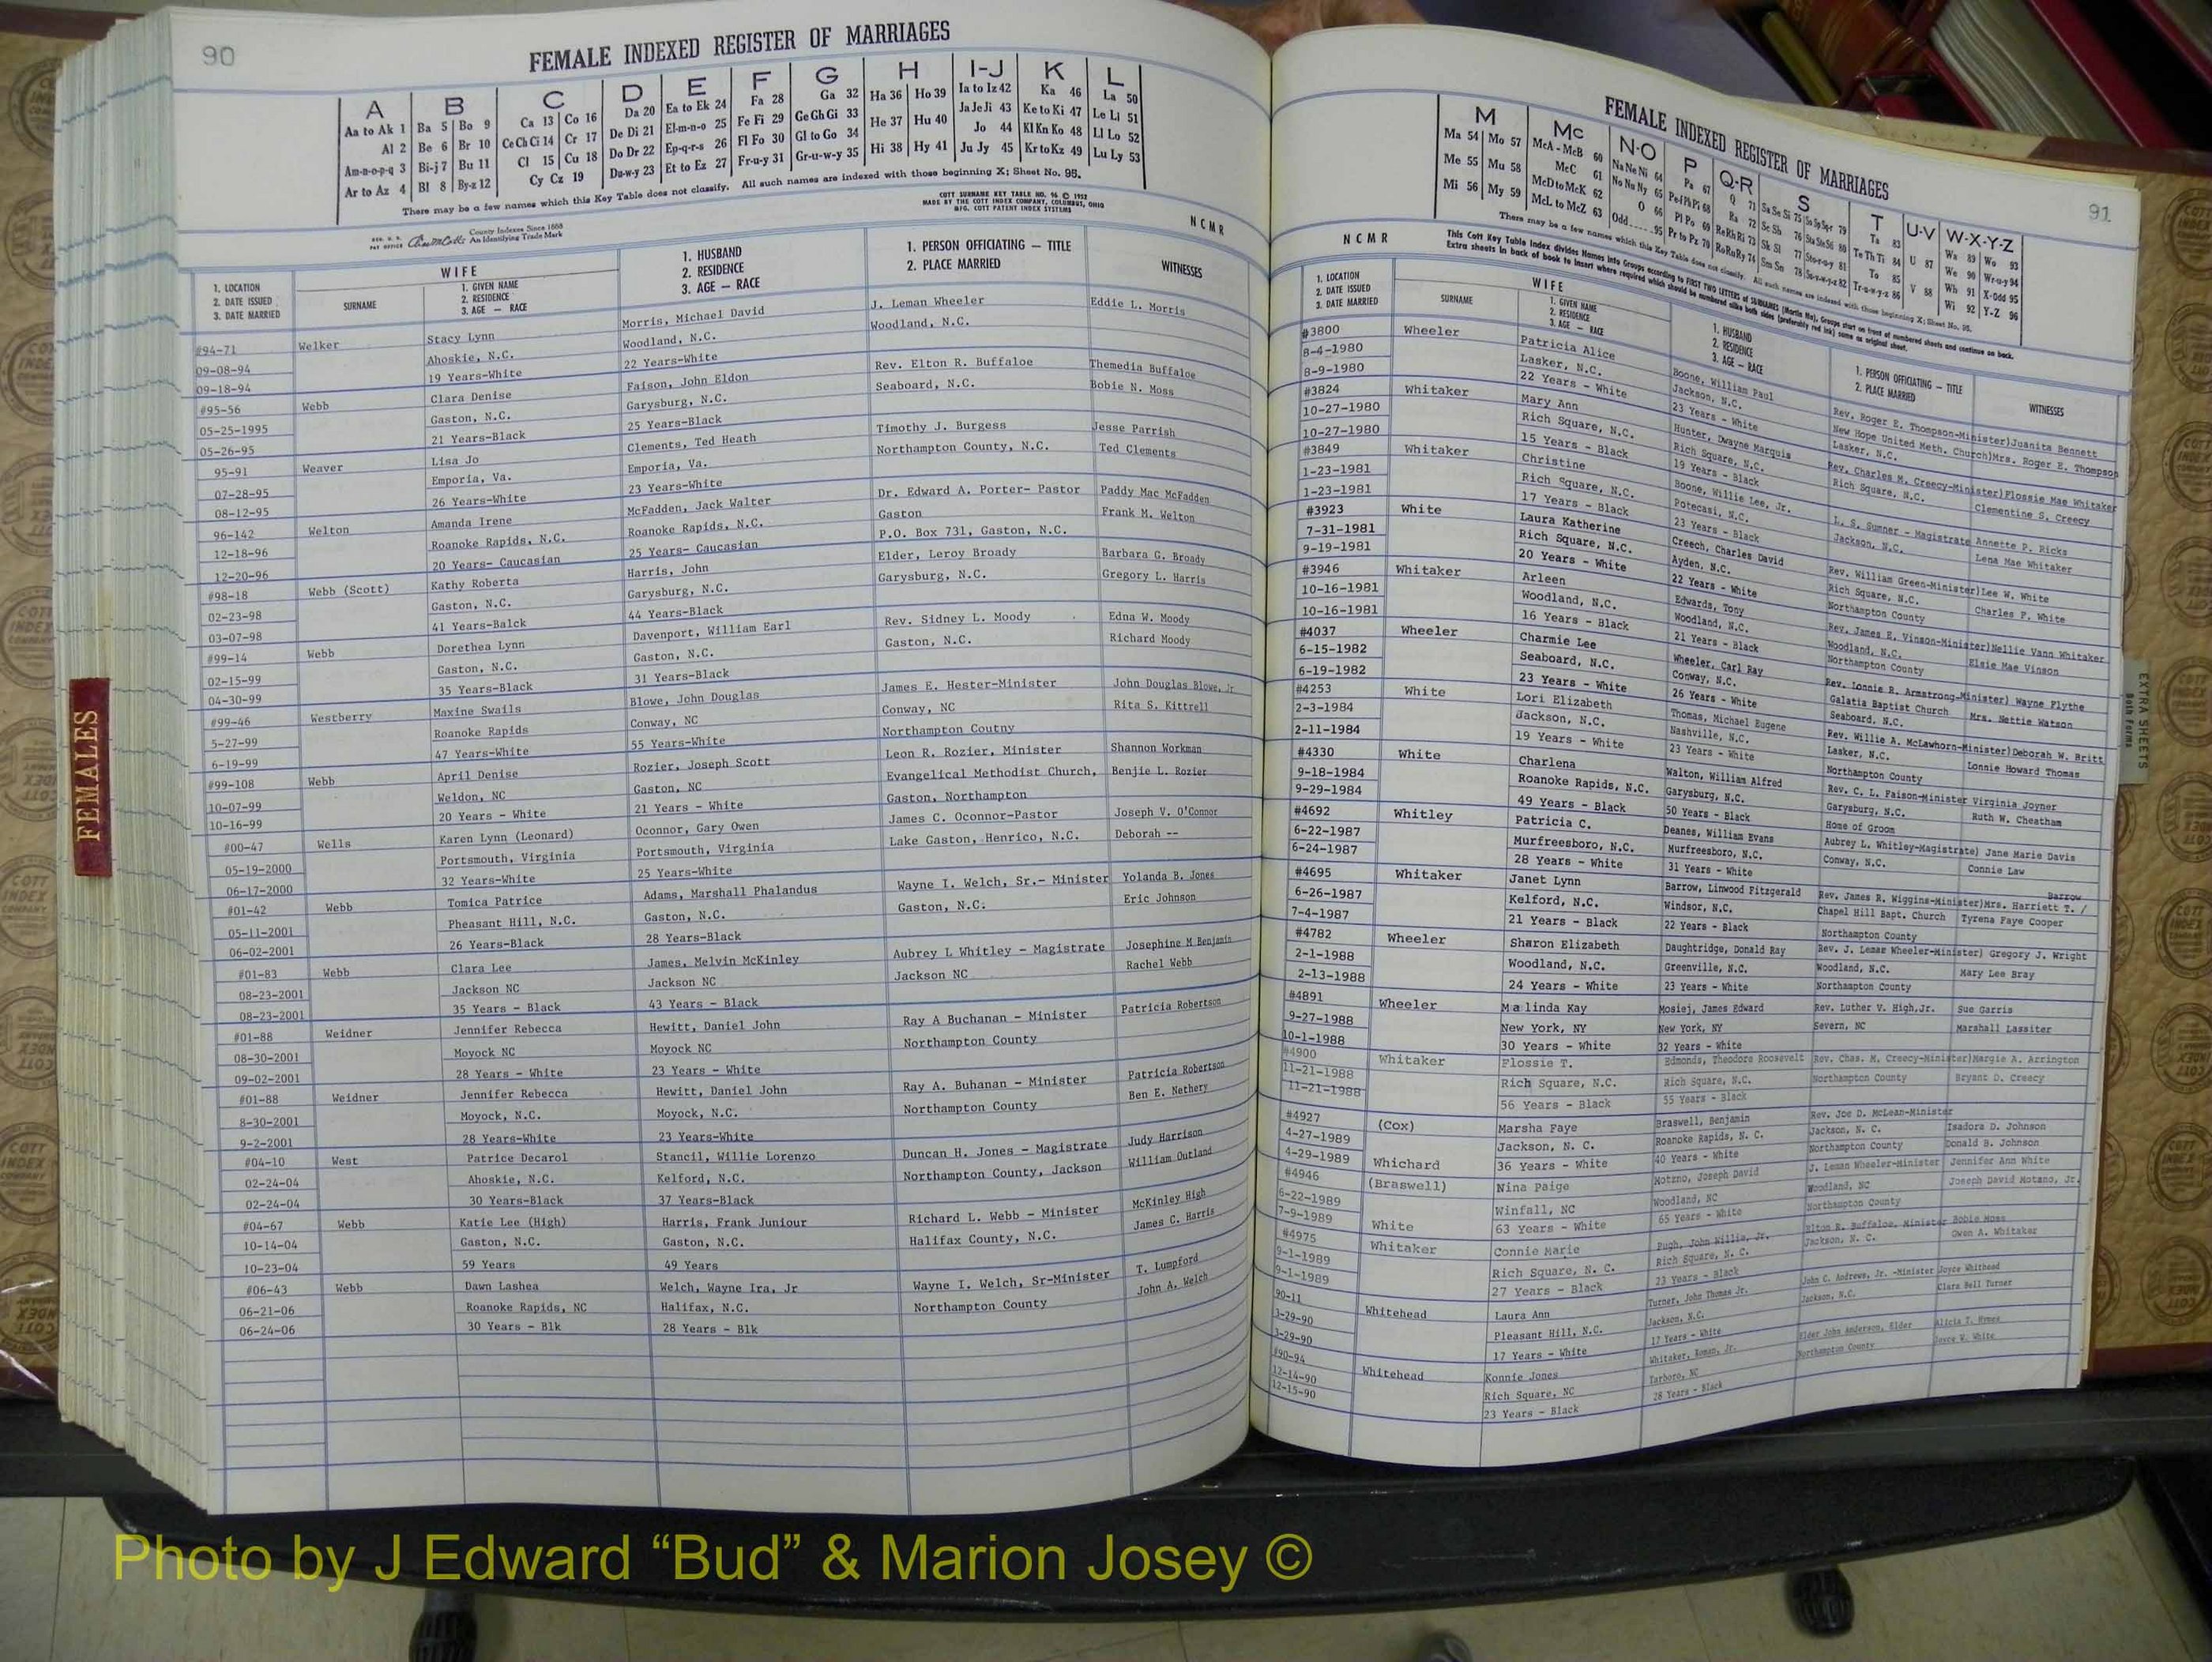 90
FEMALE INDEXED REGISTER OF MARRIAGES
A B C D E F G H I-J K L
Aa to Ak 1 Ba 5 Bo 9 Ca 13 Co 16 Da 20 Ea to Ek 24 Fa 28 Ga 32 Ha 36 Ho 39 Ia to Iz 42 Ka 46 La 50
Al 2 Be 6 Br 10 Ce Ch Ci 14 Cr 17 De Di 21 El-m-n-o 25 Fe Fi 29 Ge Gh Gi 33 He 37 Hu 40 Ja Je Ji 43 Ke to Ki 47 Le Li 51
Am-n-o-p-q 3 Bi-j 7 Bu 11 Cl 15 Cu 18 Do Dr 22 Ep-q-r-s 26 Fl Fo 30 Gl to Go 34 Hi 38 Hy 41 Jo 44 Kl Kn Ko 48 Ll Lo 52
Ar to Az 4 Bl 8 By-z 12 Cy Cz 19 Du-w-y 23 Et to Ez 27 Fr-u-y 31 Gr-u-w-y 35 Ju Jy 45 Kr to Kz 49 Lu Ly 53
There may be a few names which this Key Table does not classify. All such names are indexed with those beginning X; Sheet No. 95.
COTT SURNAME KEY TABLE NO. 96 © 1952
MADE BY THE COTT INDEX COMPANY, COLUMBUS, OHIO
MFG. COTT PATENT INDEX SYSTEMS
County Indexes Since 1888
An Identifying Trade Mark
NCMR
1. LOCATION
2. DATE ISSUED
3. DATE MARRIED
WIFE
SURNAME
1. GIVEN NAME
2. RESIDENCE
3. AGE — RACE
1. HUSBAND
2. RESIDENCE
3. AGE — RACE
1. PERSON OFFICIATING — TITLE
2. PLACE MARRIED
WITNESSES
#94-71 Welker Stacy Lynn Morris, Michael David J. Leman Wheeler Eddie L. Morris
09-08-94 Ahoskie, N.C. Woodland, N.C. Woodland, N.C.
09-18-94 19 Years-White 22 Years-White
#95-56 Webb Clara Denise Faison, John Eldon Rev. Elton R. Buffaloe Themedia Buffaloe
05-25-1995 Gaston, N.C. Garysburg, N.C. Seaboard, N.C. Bobie N. Moss
05-26-95 21 Years-Black 25 Years-Black
95-91 Weaver Lisa Jo Clements, Ted Heath Timothy J. Burgess Jesse Parrish
07-28-95 Emporia, Va. Emporia, Va. Northampton County, N.C. Ted Clements
08-12-95 26 Years-White 23 Years-White
96-142 Welton Amanda Irene McFadden, Jack Walter Dr. Edward A. Porter- Pastor Paddy Mac McFadden
12-18-96 Roanoke Rapids, N.C. Roanoke Rapids, N.C. Gaston Frank M. Welton
12-20-96 20 Years- Caucasian 25 Years- Caucasian P.O. Box 731, Gaston, N.C.
#98-18 Webb (Scott) Kathy Roberta Harris, John Elder, Leroy Broady Barbara G. Broady
02-23-98 Gaston, N.C. Garysburg, N.C. Garysburg, N.C. Gregory L. Harris
03-07-98 41 Years-Balck 44 Years-Black
#99-14 Webb Dorethea Lynn Davenport, William Earl Rev. Sidney L. Moody Edna W. Moody
02-15-99 Gaston, N.C. Gaston, N.C. Gaston, N.C. Richard Moody
04-30-99 35 Years-Black 31 Years-Black
#99-46 Westberry Maxine Swails Blowe, John Douglas James E. Hester-Minister John Douglas Blowe, Jr
5-27-99 Roanoke Rapids Conway, NC Conway, NC Rita S. Kittrell
6-19-99 47 Years-White 55 Years-White Northampton Coutny
#99-108 Webb April Denise Rozier, Joseph Scott Leon R. Rozier, Minister Shannon Workman
10-07-99 Weldon, NC Gaston, NC Evangelical Methodist Church, Benjie L. Rozier
10-16-99 20 Years - White 21 Years - White Gaston, Northampton
#00-47 Wells Karen Lynn (Leonard) Oconnor, Gary Owen James C. Oconnor-Pastor Joseph V. O'Connor
05-19-2000 Portsmouth, Virginia Portsmouth, Virginia Lake Gaston, Henrico, N.C. Deborah --
06-17-2000 32 Years-White 25 Years-White
#01-42 Webb Tomica Patrice Adams, Marshall Phalandus Wayne I. Welch, Sr.- Minister Yolanda B. Jones
05-11-2001 Pheasant Hill, N.C. Gaston, N.C. Gaston, N.C. Eric Johnson
06-02-2001 26 Years-Black 28 Years-Black
#01-83 Webb Clara Lee James, Melvin McKinley Aubrey L Whitley - Magistrate Josephine M Benjamin
08-23-2001 Jackson NC Jackson NC Jackson NC Rachel Webb
08-23-2001 35 Years - Black 43 Years - Black
#01-88 Weidner Jennifer Rebecca Hewitt, Daniel John Ray A Buchanan - Minister Patricia Robertson
08-30-2001 Moyock NC Moyock NC Northampton County
09-02-2001 28 Years - White 23 Years - White
#01-88 Weidner Jennifer Rebecca Hewitt, Daniel John Ray A. Buhanan - Minister Patricia Robertson
8-30-2001 Moyock, N.C. Moyock, N.C. Northampton County Ben E. Nethery
9-2-2001 28 Years-White 23 Years-White
#04-10 West Patrice Decarol Stancil, Willie Lorenzo Duncan H. Jones - Magistrate Judy Harrison
02-24-04 Ahoskie, N.C. Kelford, N.C. Northampton County, Jackson William Outland
02-24-04 30 Years-Black 37 Years-Black
#04-67 Webb Katie Lee (High) Harris, Frank Juniour Richard L. Webb - Minister McKinley High
10-14-04 Gaston, N.C. Gaston, N.C. Halifax County, N.C. James C. Harris
10-23-04 59 Years 49 Years
#06-43 Webb Dawn Lashea Welch, Wayne Ira, Jr Wayne I. Welch, Sr-Minister T. Lumpford
06-21-06 Roanoke Rapids, NC Halifax, N.C. Northampton County John A. Welch
06-24-06 30 Years - Blk 28 Years - Blk
FEMALES
91
FEMALE INDEXED REGISTER OF MARRIAGES
M Mc N-O P Q-R S T U-V W-X-Y-Z
Ma 54 Mo 57 McA - McB 60 Na Ne Ni 64 Pa 67 Q 71 Sa Se Si 75 Ta 83 Wa 89 Wo 93
Me 55 Mu 58 McC 61 No Nu Ny 65 Ra 72 Te Th Ti 84 U 87 We 90 Wr-u-y 94
Mi 56 My 59 McD to McK 62 O 66 Pl Po 69 Re Rh Ri 73 To 85 Wh 91 X-Odd 95
McL to McZ 63 Odd 95 Pr to Pz 70 Ro Ru Ry 74 Tr-u-w-y-z 86 V 88 Wi 92 Y-Z 96
There may be a few names which this Key Table does not classify. All such names are indexed with those beginning X; Sheet No. 95.
This Cott Key Table Index divides Names into Groups according to FIRST TWO LETTERS of SURNAMES (Martin Ma), Groups start on front of numbered sheets and continue on back.
Extra sheets in back of book to insert where required which should be numbered alike both sides (preferably red ink) same as original sheet.
NCMR
1. LOCATION
2. DATE ISSUED
3. DATE MARRIED
WIFE
SURNAME
1. GIVEN NAME
2. RESIDENCE
3. AGE — RACE
1. HUSBAND
2. RESIDENCE
3. AGE — RACE
1. PERSON OFFICIATING — TITLE
2. PLACE MARRIED
WITNESSES
#3800 Wheeler Patricia Alice Boone, William Paul Rev. Roger E. Thompson-Minister)Juanita Bennett
8-4-1980 Lasker, N.C. Jackson, N.C. New Hope United Meth. Church)Mrs. Roger E. Thompson
8-9-1980 22 Years - White 23 Years - White Lasker, N.C.
#3824 Whitaker Mary Ann Hunter, Dwayne Marquis Rev. Charles M. Creecy-Minister)Flossie Mae Whitaker
10-27-1980 Rich Square, N.C. Rich Square, N.C. Rich Square, N.C. Clementine S. Creecy
10-27-1980 15 Years - Black 19 Years - Black
#3849 Whitaker Christine Boone, Willie Lee, Jr. L. S. Sumner - Magistrate Annette P. Ricks
1-23-1981 Rich Square, N.C. Potecasi, N.C. Jackson, N.C. Lena Mae Whitaker
1-23-1981 17 Years - Black 23 Years - Black
#3923 White Laura Katherine Creech, Charles David Rev. William Green-Minister)Lee W. White
7-31-1981 Rich Square, N.C. Ayden, N.C. Rich Square, N.C. Charles F. White
9-19-1981 20 Years - White 22 Years - White Northampton County
#3946 Whitaker Arleen Edwards, Tony Rev. James E. Vinson-Minister)Nellie Vann Whitaker
10-16-1981 Woodland, N.C. Woodland, N.C. Woodland, N.C. Elsie Mae Vinson
10-16-1981 16 Years - Black 21 Years - Black Northampton County
#4037 Wheeler Charmie Lee Wheeler, Carl Ray Rev. Lonnie R. Armstrong-Minister) Wayne Flythe
6-15-1982 Seaboard, N.C. Conway, N.C. Galatia Baptist Church Mrs. Nettie Watson
6-19-1982 23 Years - White 26 Years - White Seaboard, N.C.
#4253 White Lori Elizabeth Thomas, Michael Eugene Rev. Willie A. McLawhorn-Minister)Deborah W. Britt
2-3-1984 Jackson, N.C. Nashville, N.C. Lasker, N.C. Lonnie Howard Thomas
2-11-1984 19 Years - White 23 Years - White Northampton County
#4330 White Charlena Walton, William Alfred Rev. C. L. Faison-Minister Virginia Joyner
9-18-1984 Roanoke Rapids, N.C. Garysburg, N.C. Garysburg, N.C. Ruth W. Cheatham
9-29-1984 49 Years - Black 50 Years - Black Home of Groom
#4692 Whitley Patricia C. Deanes, William Evans Aubrey L. Whitley-Magistrate) Jane Marie Davis
6-22-1987 Murfreesboro, N.C. Murfreesboro, N.C. Conway, N.C. Connie Law
6-24-1987 28 Years - White 31 Years - White
#4695 Whitaker Janet Lynn Barrow, Linwood Fitzgerald Rev. James R. Wiggins-Minister)Mrs. Harriett T. / Barrow
6-26-1987 Kelford, N.C. Windsor, N.C. Chapel Hill Bapt. Church Tyrena Faye Cooper
7-4-1987 21 Years - Black 22 Years - Black Northampton County
#4782 Wheeler Sharon Elizabeth Daughtridge, Donald Ray Rev. J. Leman Wheeler-Minister) Gregory J. Wright
2-1-1988 Woodland, N.C. Greenville, N.C. Woodland, N.C. Mary Lee Bray
2-13-1988 24 Years - White 23 Years - White Northampton County
#4891 Wheeler Malinda Kay Mosiej, James Edward Rev. Luther V. High,Jr. Sue Garris
9-27-1988 New York, NY New York, NY Severn, NC Marshall Lassiter
10-1-1988 30 Years - White 32 Years - White
#4900 Whitaker Flossie T. Edmonds, Theodore Roosevelt Rev. Chas. M. Creecy-Minister)Margie A. Arrington
11-21-1988 Rich Square, N.C. Rich Square, N.C. Northampton County Bryant D. Creecy
11-21-1988 56 Years - Black 55 Years - Black
#4927 (Cox) Marsha Faye Braswell, Benjamin Rev. Joe D. McLean-Minister
4-27-1989 Jackson, N. C. Roanoke Rapids, N. C. Jackson, N. C. Isadora D. Johnson
4-29-1989 Whichard 36 Years - White 40 Years - White Northampton County Donald B. Johnson
#4946 (Braswell) Nina Paige Motzno, Joseph David J. Leman Wheeler-Minister Jennifer Ann White
6-22-1989 Winfall, NC Woodland, NC Woodland, NC Joseph David Motzno, Jr.
7-9-1989 White 63 Years - White 65 Years - White Northampton County
#4975 Whitaker Connie Marie Pugh, John Willie, Jr. Elton R. Buffaloe, Minister Bobie Moss
9-1-1989 Rich Square, N. C. Rich Square, N. C. Jackson, N. C. Gwen A. Whitaker
9-1-1989 27 Years - Black 23 Years - Black
90-11 Whitehead Laura Ann Turner, John Thomas Jr. John C. Andrews, Jr. -Minister Joyce Whitehead
3-29-90 Pleasant Hill, N.C. Jackson, N.C. Jackson, N.C. Clara Bell Turner
3-29-90 17 Years - White 17 Years - White
#90-94 Whitehead Konnie Jones Whitaker, Roman, Jr. Elder John Anderson, Elder Alicia T. Hymes
12-14-90 Rich Square, NC Tarboro, NC Northampton County Joyce W. White
12-15-90 23 Years - Black 28 Years - Black
EXTRA SHEETS
Both Forms
Photo by J Edward “Bud” & Marion Josey ©